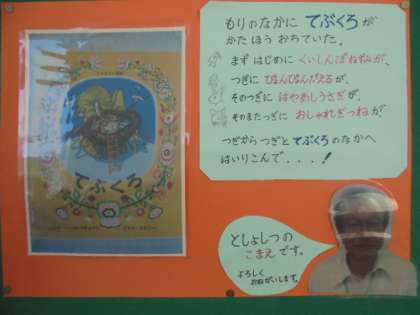 てぶくろ
もりのなかに てぶくろが
かたほう おちていた。
まず はじめに くいしんぼねずみが、
つぎに ぴょんぴょんがえるが、
そのつぎに はやあしうさぎが、
そのまたつぎに おしゃれぎつねが、
つぎからつぎと てぶくろのなかへ
はいりこんで・・・・!
としょしつの
こまえ です。
よろしく
おねがいします。